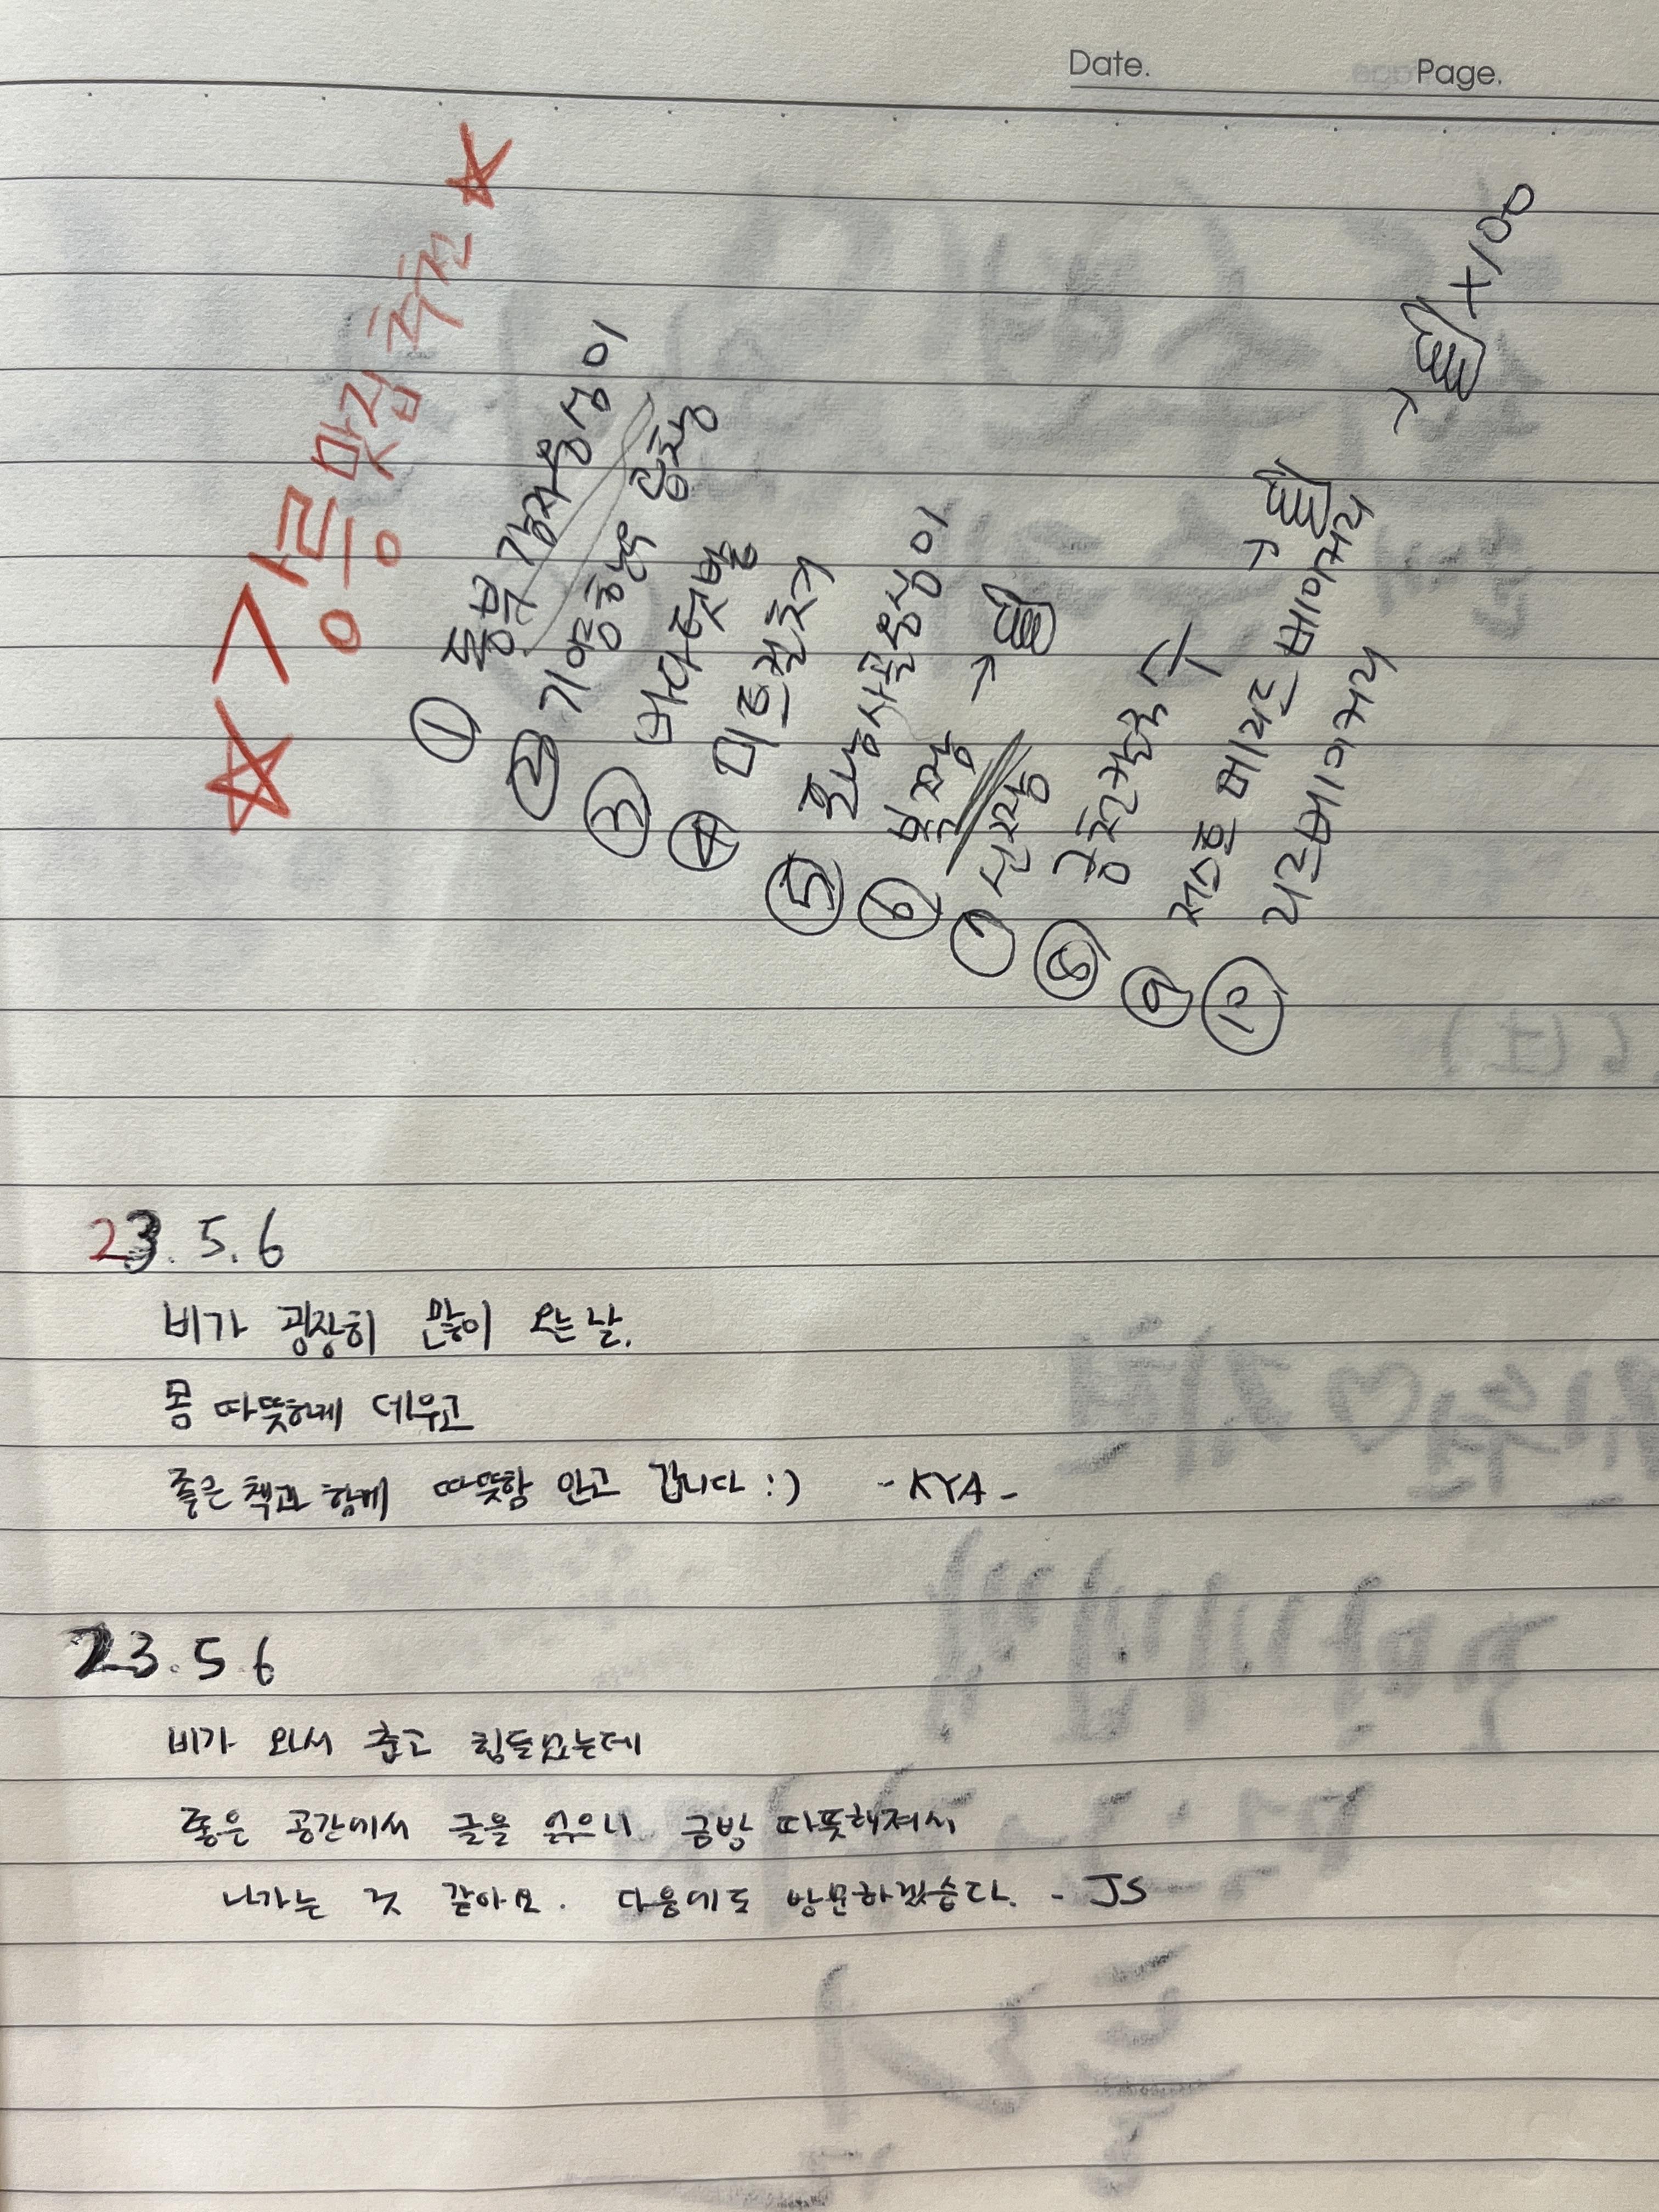 Date. Page.
☆강릉 맛집 추천☆
① 동북 감자옹심이
② 기와 짬뽕
③ 바다 횟밥
④ 미트컬쳐
⑤ 옹심이
⑥ 북장
⑦
⑧ 두
⑨ 저스트 베리드 베이커리 →
⑩ 리즈베이커리 → x100
23.5.6
비가 굉장히 많이 오는 날.
몸 따뜻하게 데우고
좋은 책과 함께 따뜻함 안고 갑니다 :) -KYA-
23.5.6
비가 와서 춥고 힘들었는데
좋은 공간에서 글을 읽으니 금방 따뜻해져서
나가는 것 같아요. 다음에도 방문하겠습니다. - JS